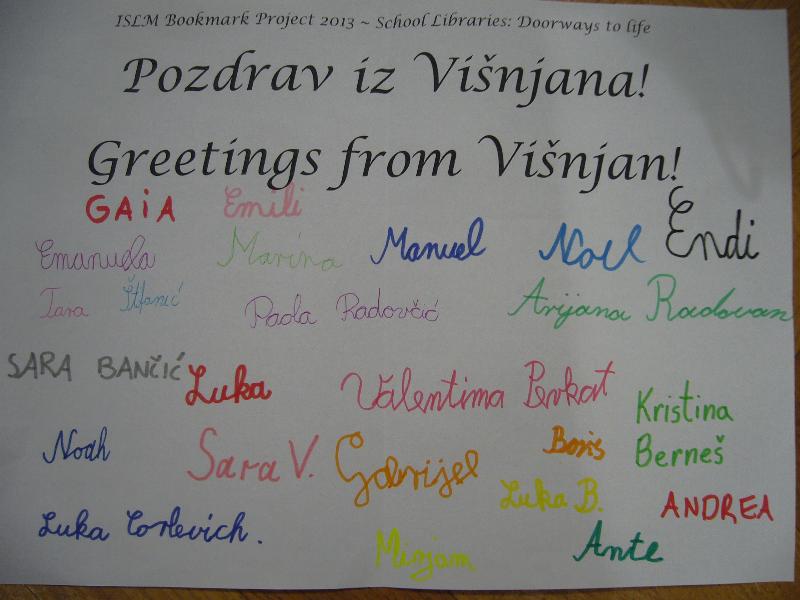 ISLM Bookmark Project 2013 ~ School Libraries: Doorways to life
Pozdrav iz Višnjana!
Greetings from Višnjan!
GAiA Emili
Emanuela Marina Manuel Noel Endi
Tara Štifanić Paola Radovčić Arijana Radovan
SARA BANČIĆ Luka Valentima Perkat Kristina
Noah Sara V. Gabrijel Boris Berneš
Luka B. ANDREA
Luka Mirjam Ante